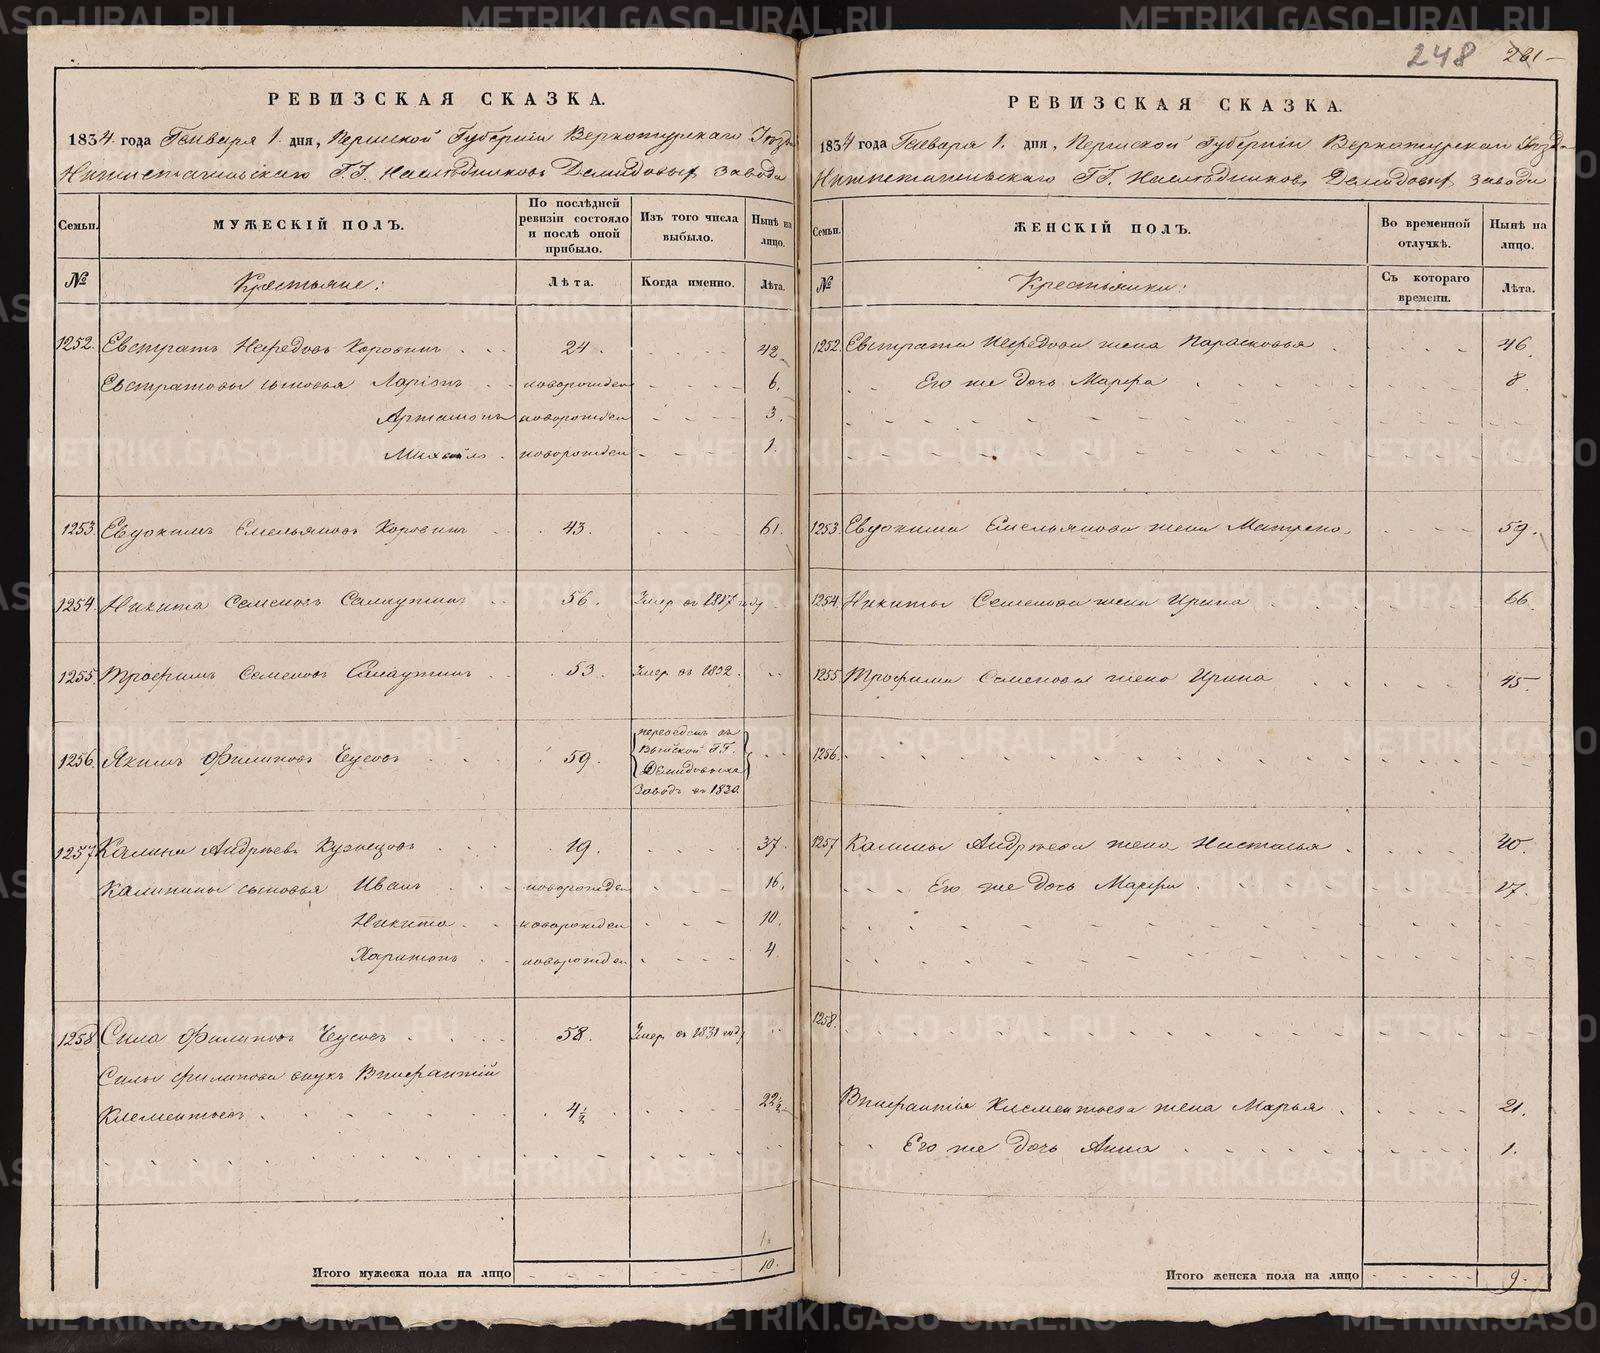 248 261
РЕВИЗСКАЯ СКАЗКА.
1834. года Генваря 1. дня, Пермской Губерніи Верхотурскаго Уѣзда
Нижнетагильскаго Г.Г. Наслѣдниковъ Демидовыхъ завода
Семьи.
МУЖЕСКІЙ ПОЛЪ.
По послѣдней ревизіи состояло и послѣ оной прибыло.
Изъ того числа выбыло.
Нынѣ на лицо.
№
Крестьяне:
Лѣта.
Когда именно.
Лѣта.
1252. Евстратъ Нефедовъ Коровинъ 24. 42
Евстратовы сыновья Ларіонъ новорожден 6.
Артамонъ новорожден 3.
Михайло новорожден 1.
1253 Евдокимъ Емельяновъ Коровинъ 43. 61.
1254. Никита Семеновъ 56. Умер въ 1817 году
1255. Трофимъ Семеновъ 53. Умер въ 1832.
1256. Якимъ Филиповъ Чусовъ 59. переведенъ въ
Выйской Г.Г.
Демидовыхъ
Заводъ въ 1830.
1257 Калина Андреевъ Кузнецовъ 19. 37.
Калинины сыновья Иванъ новорожден 16.
Никита новорожден 10.
Харитонъ новорожден 4.
1258 Сила Филиповъ Чусовъ 58. Умер. въ 1831 году
Силы Филипова внукъ Вниფантій
Клементьевъ 4½ 22½
Итого мужеска пола на лицо 10.
РЕВИЗСКАЯ СКАЗКА.
1834 года Генваря 1. дня, Пермской Губерніи Верхотурскаго Уѣзда
Нижнетагильскаго ГГ. Наслѣдниковъ Демидовыхъ завода
Семьи.
ЖЕНСКІЙ ПОЛЪ.
Во временной отлучкѣ.
Нынѣ на лицо.
№
Крестьянки:
Съ котораго времени.
Лѣта.
1252. Евстрата Нефедова жена Парасковья 46.
Его же дочь Марфа 8.
1253. Евдокима Емельянова жена Матрена 59.
1254. Никиты Семенова жена Ирина 66.
1255. Трофима Семенова жена Ирина 45.
1256.
1257 Калины Андреева жена Наталья 40.
Его же дочь Марфа 17.
1258.
Внифантія Клементьева жена Марья 21.
Его же дочь Анна 1.
Итого женска пола на лицо 9.
METRIKI.GASO-URAL.RU